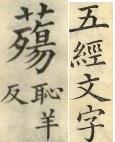 五經文字
薚
恥羊
反